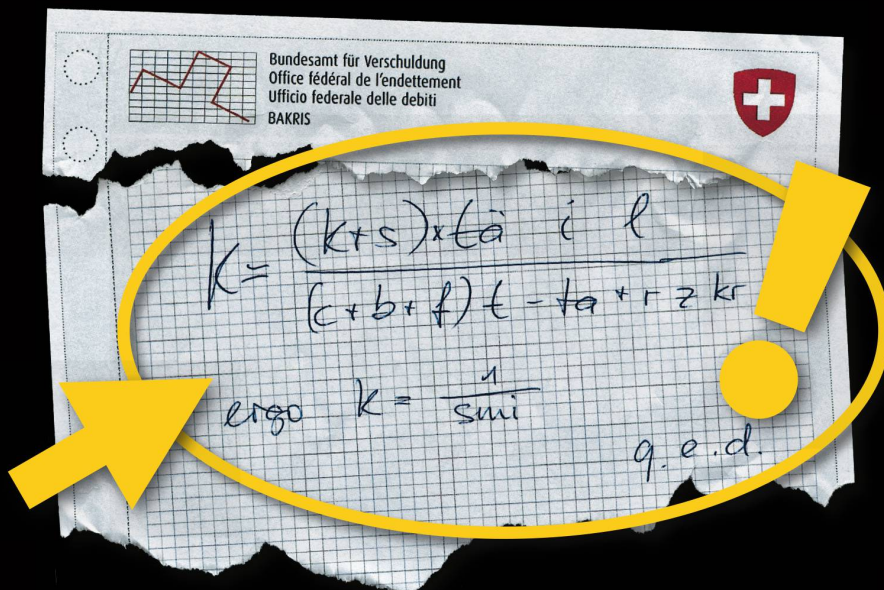 Bundesamt für Verschuldung
Office fédéral de l'endettement
Ufficio federale delle debiti
BAKRIS
K = (k+s)x tä i l
(c + b + f) t - ta + r z kr
ergo k = 1
smi
q.e.d.
!